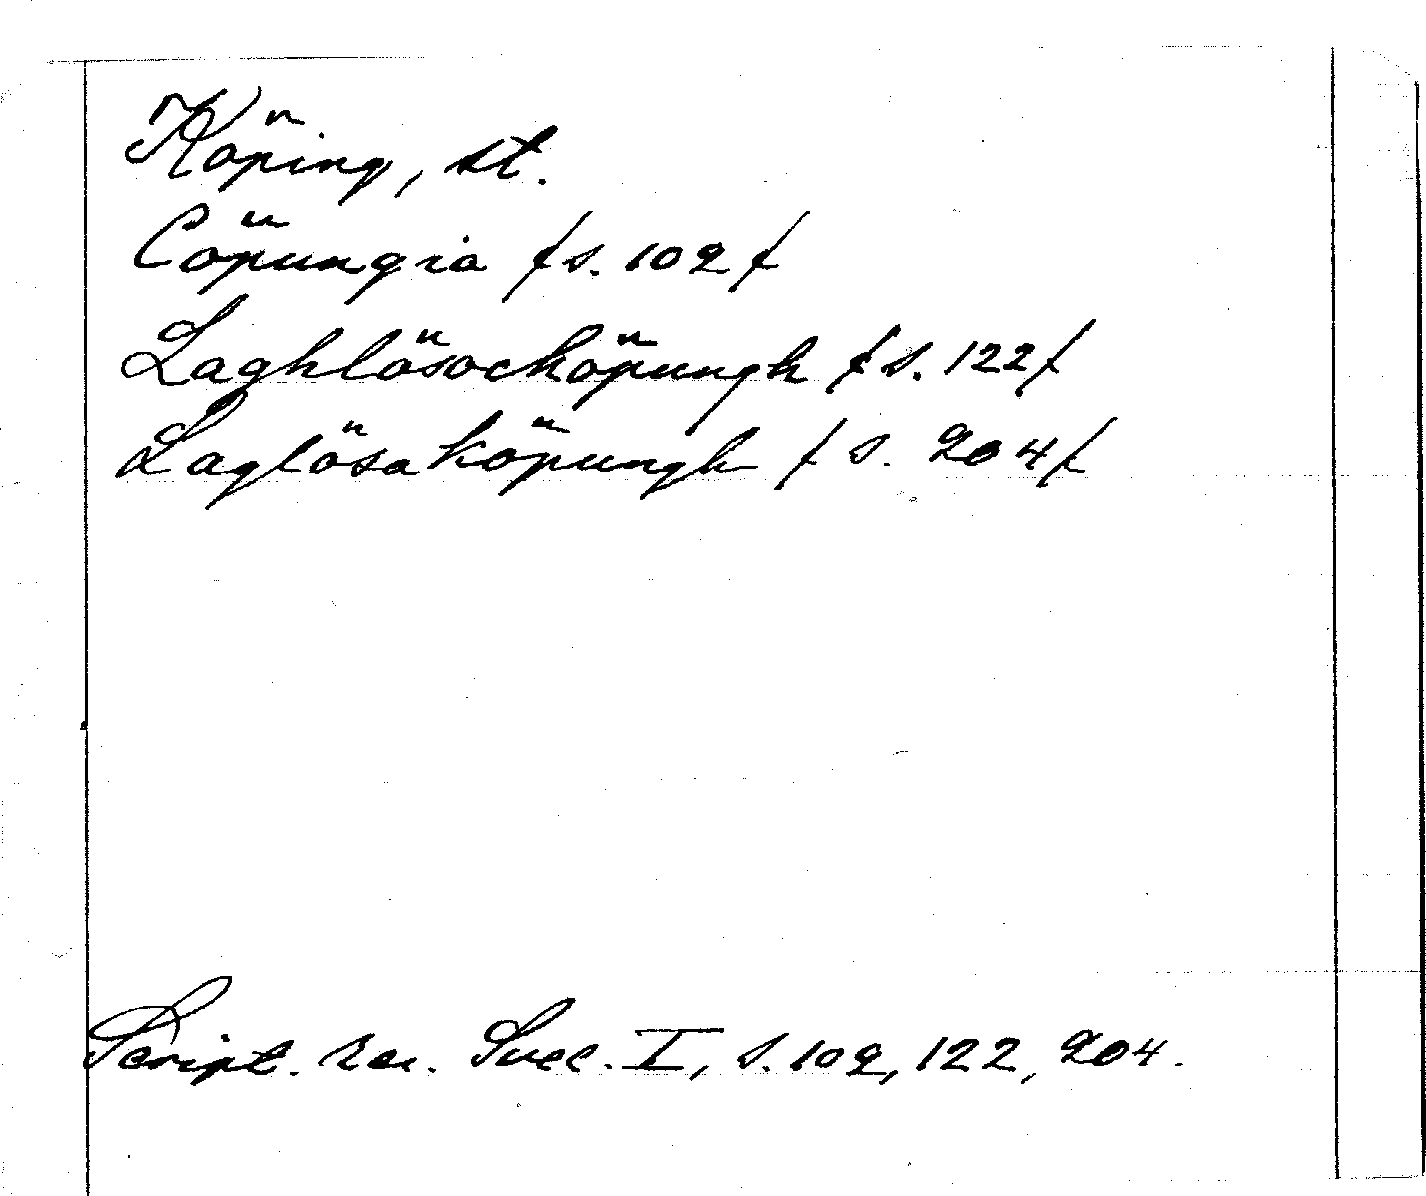 Köping, st.
Cöpungia /s. 102/
Laghlösocköpungh /s. 122/
Laglösaköpungh /s. 204/
Script. rer. Suec. I, s. 102, 122, 204.